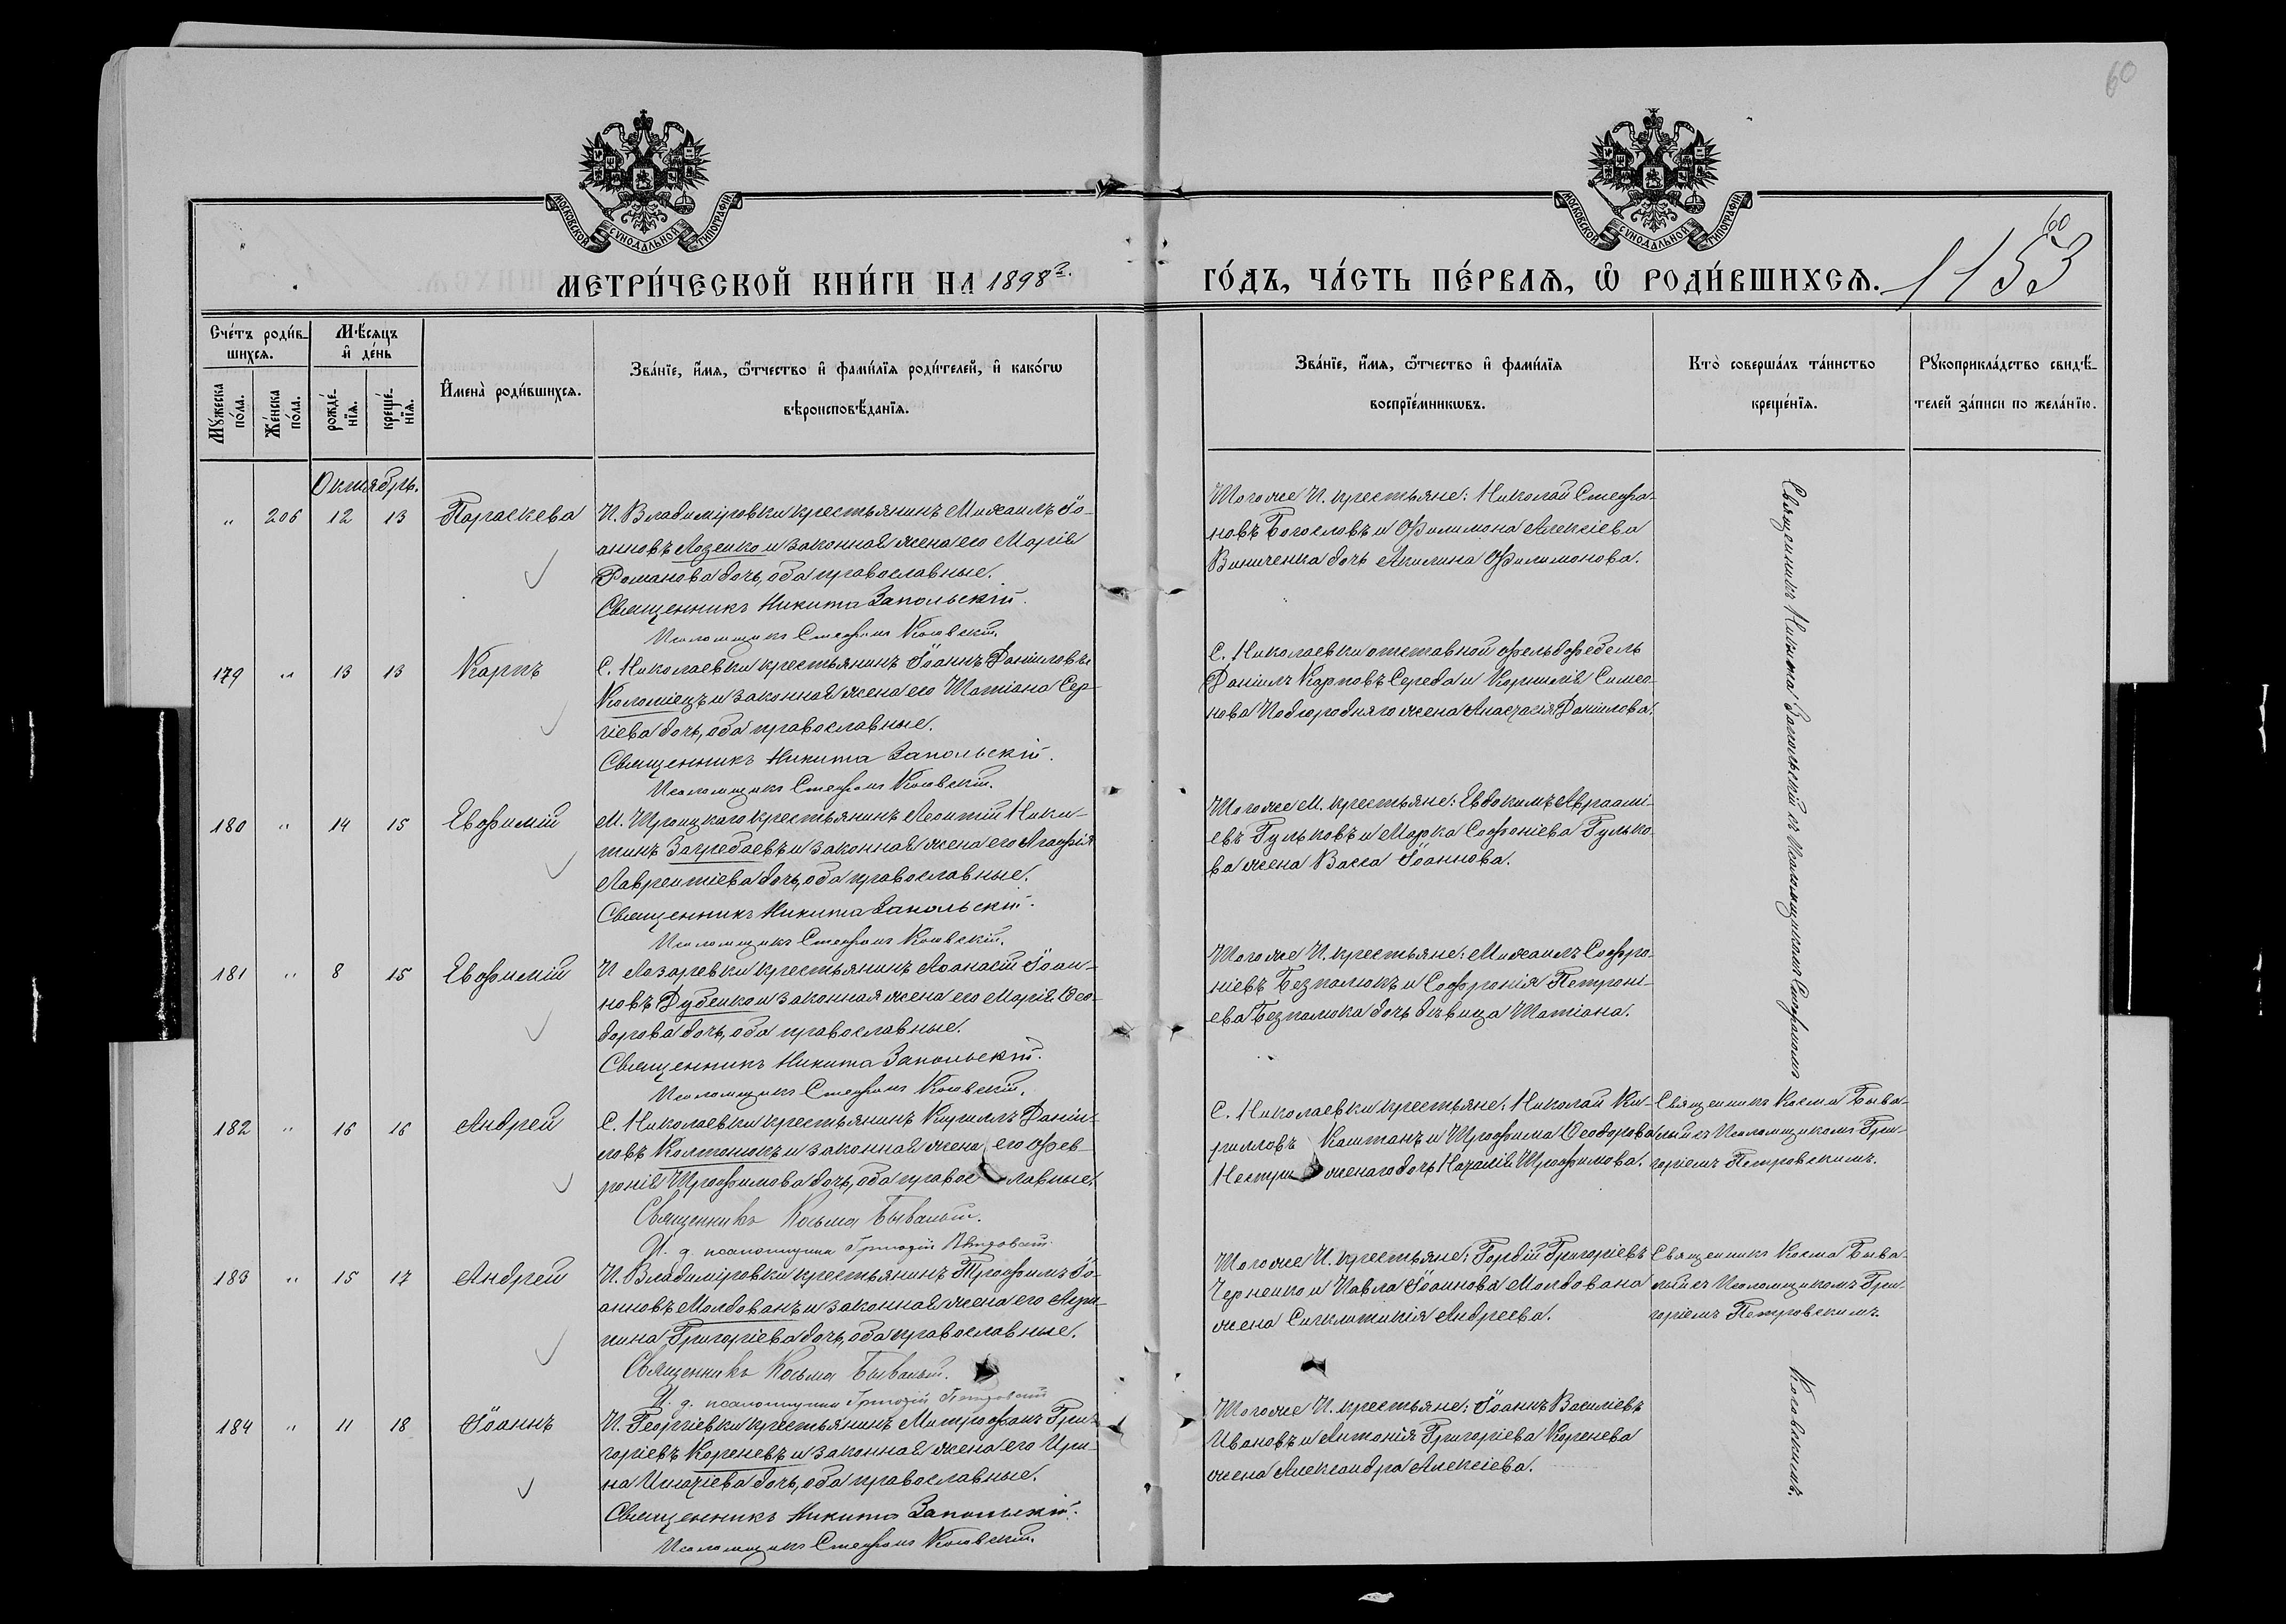 60
МОСКОВСКОЙ СѴНОДАЛЬНОЙ ТИПОГРАФІИ
МОСКОВСКОЙ СѴНОДАЛЬНОЙ ТИПОГРАФІИ
60
МЕТРИ́ЧЕСКОЙ КНИ́ГИ НА 1898 г.
ГО́ДЪ, ЧА́СТЬ ПЕ́РВАѦ, Ѽ РОДИ́ВШИХСѦ.
1153
Сче́тъ роди́в-
шихсѧ.
Мѣ́сѧцъ
и҆ де́нь
Мꙋ́жеска по́ла.
Же́нска по́ла.
рожде́-
нїѧ.
креще́-
нїѧ.
И҆мена̀ роди́вшихсѧ.
Зва́нїе, и҆́мѧ, ѻ҆́тчество и҆ фами́лїѧ роди́телей, и҆ како́гѡ
вѣроисповѣ́данїѧ.
Зва́нїе, и҆́мѧ, ѻ҆́тчество и҆ фами́лїѧ
воспрїе́мникѡвъ.
Кто̀ соверша́лъ та́инство
креще́нїѧ.
Рꙋкоприкла́дство свидѣ́-
телей за́писи по жела́нїю.
Октябрь.
" 206 12 13 Параскева
П. Владиміровки крестьянинъ Михаилъ Іо-
анновъ Лозенко и законная жена его Марія
Романова дочь, оба православные.
Священникъ Никита Запольскій.
Псаломщикъ Стефанъ Косовскій.
Того же П. крестьяне: Николай Стефа-
новъ Богословъ и Филимона Алексіева
Виниченка дочь Акилина Филимонова.
Священникъ Никита Запольскій съ Псаломщикомъ Стефаномъ
179 " 13 13 Карпъ
С. Николаевки крестьянинъ Іоаннъ Даніиловъ
Коломіецъ и законная жена его Татіана Сер-
гіева дочь, оба православные.
Священникъ Никита Запольскій.
Псаломщикъ Стефанъ Косовскій.
С. Николаевки отставной фельдфебель
Даніилъ Карповъ Середа и Корнилія Симео-
нова Подгородняго жена Анастасія Даніилова.
180 " 14 15 Евфимій
М. Троицкаго крестьянинъ Леонтій Ники-
тинъ Загребаевъ и законная жена его Агафія
Лаврентіева дочь, оба православные.
Священникъ Никита Запольскій.
Псаломщикъ Стефанъ Косовскій.
Того же М. крестьяне: Евдокимъ Авраамі-
евъ Гульковъ и Марка Софоніева Гулько-
ва жена Васса Іоаннова.
181 " 8 15 Евфимій
П. Лазаревки крестьянинъ Аѳанасій Іоан-
новъ Дубенко и законная жена его Марія Ѳео-
дорова дочь, оба православные.
Священникъ Никита Запольскій.
Псаломщикъ Стефанъ Косовскій.
Того же П. крестьяне: Михаилъ Софро-
ніевъ Безпалюкъ и Софронія Петроні-
ева Безпалюка дочь дѣвица Татіана.
182 " 16 16 Андрей
С. Николаевки крестьянинъ Кириллъ Даніи-
ловъ Колтонюкъ и законная жена его Фев-
ронія Трофимова дочь, оба православные.
Священникъ Косьма Бывалый.
И. д. псаломщика Григорій Петровскій.
С. Николаевки крестьяне: Николай Ки-
рилловъ Каштанъ и Трофима Ѳеодорова
дочь Наталія Трофимова.
Священникъ Косма Быва-
лый съ Псаломщикомъ Гри-
горіемъ Петровскимъ.
183 " 15 17 Андрей
П. Владиміровки крестьянинъ Трофимъ Іо-
анновъ Молдованъ и законная жена его Агри-
пина Григоріева дочь, оба православные.
Священникъ Косьма Бывалый.
И. д. псаломщика Григорій Петровскій
Того же П. крестьяне: Гордій Григоріевъ
Черненко и Павла Іоаннова Молдована
жена Сигклитикія Андреева.
Священникъ Косма Быва-
лый съ Псаломщикомъ Гри-
горіемъ Петровскимъ.
184 " 11 18 Іоаннъ
П. Георгіевки крестьянинъ Митрофанъ Гри-
горіевъ Кореневъ и законная жена его Ири-
на Игнатіева дочь, оба православные.
Священникъ Никита Запольскій.
Псаломщикъ Стефанъ Косовскій.
Того же П. крестьяне: Іоаннъ Василіевъ
Ивановъ и Антонія Григоріева Коренева
жена Александра Алексіева.
Косовскимъ.